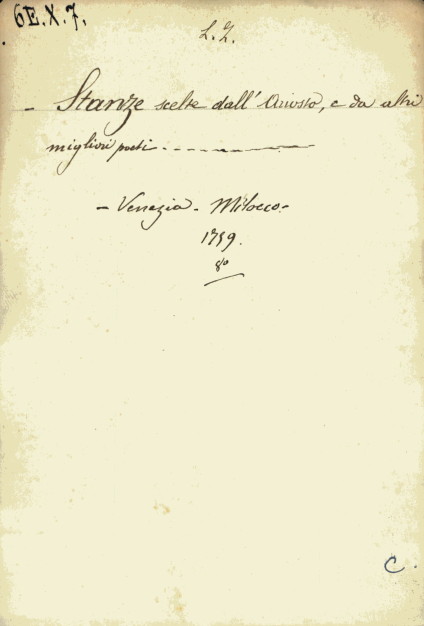 6E.X.7.
L.Z.
- Stanze scelte dall' Ariosto, e da altri
migliori poeti. - - - - -
- Venezia - Milocco -
1759.
8º
C.